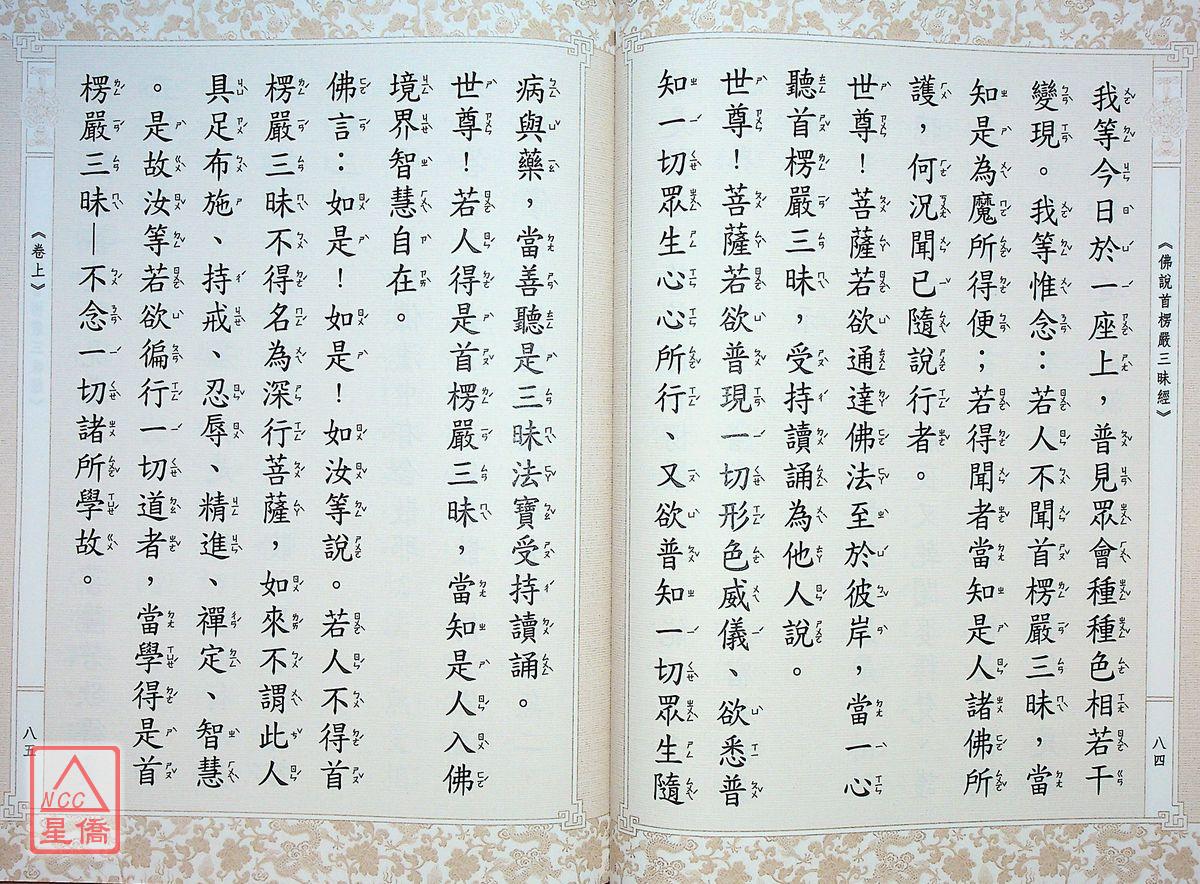 《佛說首楞嚴三昧經》
八四
我等今日於一座上，普見眾會種種色相若干
變現。我等惟念：若人不聞首楞嚴三昧，當
知是為魔所得便；若得聞者當知是人諸佛所
護，何況聞已隨說行者。
世尊！菩薩若欲通達佛法至於彼岸，當一心
聽首楞嚴三昧，受持讀誦為他人說。
世尊！菩薩若欲普現一切形色威儀、欲悉普
知一切眾生心心所行、又欲普知一切眾生隨
病與藥，當善聽是三昧法寶受持讀誦。
世尊！若人得是首楞嚴三昧，當知是人入佛
境界智慧自在。
佛言：如是！如是！如汝等說。若人不得首
楞嚴三昧不得名為深行菩薩，如來不謂此人
具足布施、持戒、忍辱、精進、禪定、智慧
。是故汝等若欲徧行一切道者，當學得是首
楞嚴三昧—不念一切諸所學故。
《卷上》
八五
NCC
星僑